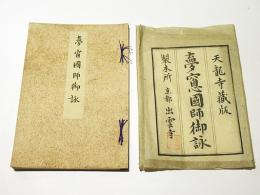 夢窗國師御詠
天龍寺藏版
夢窓國師御詠
製本所 京都 出雲寺